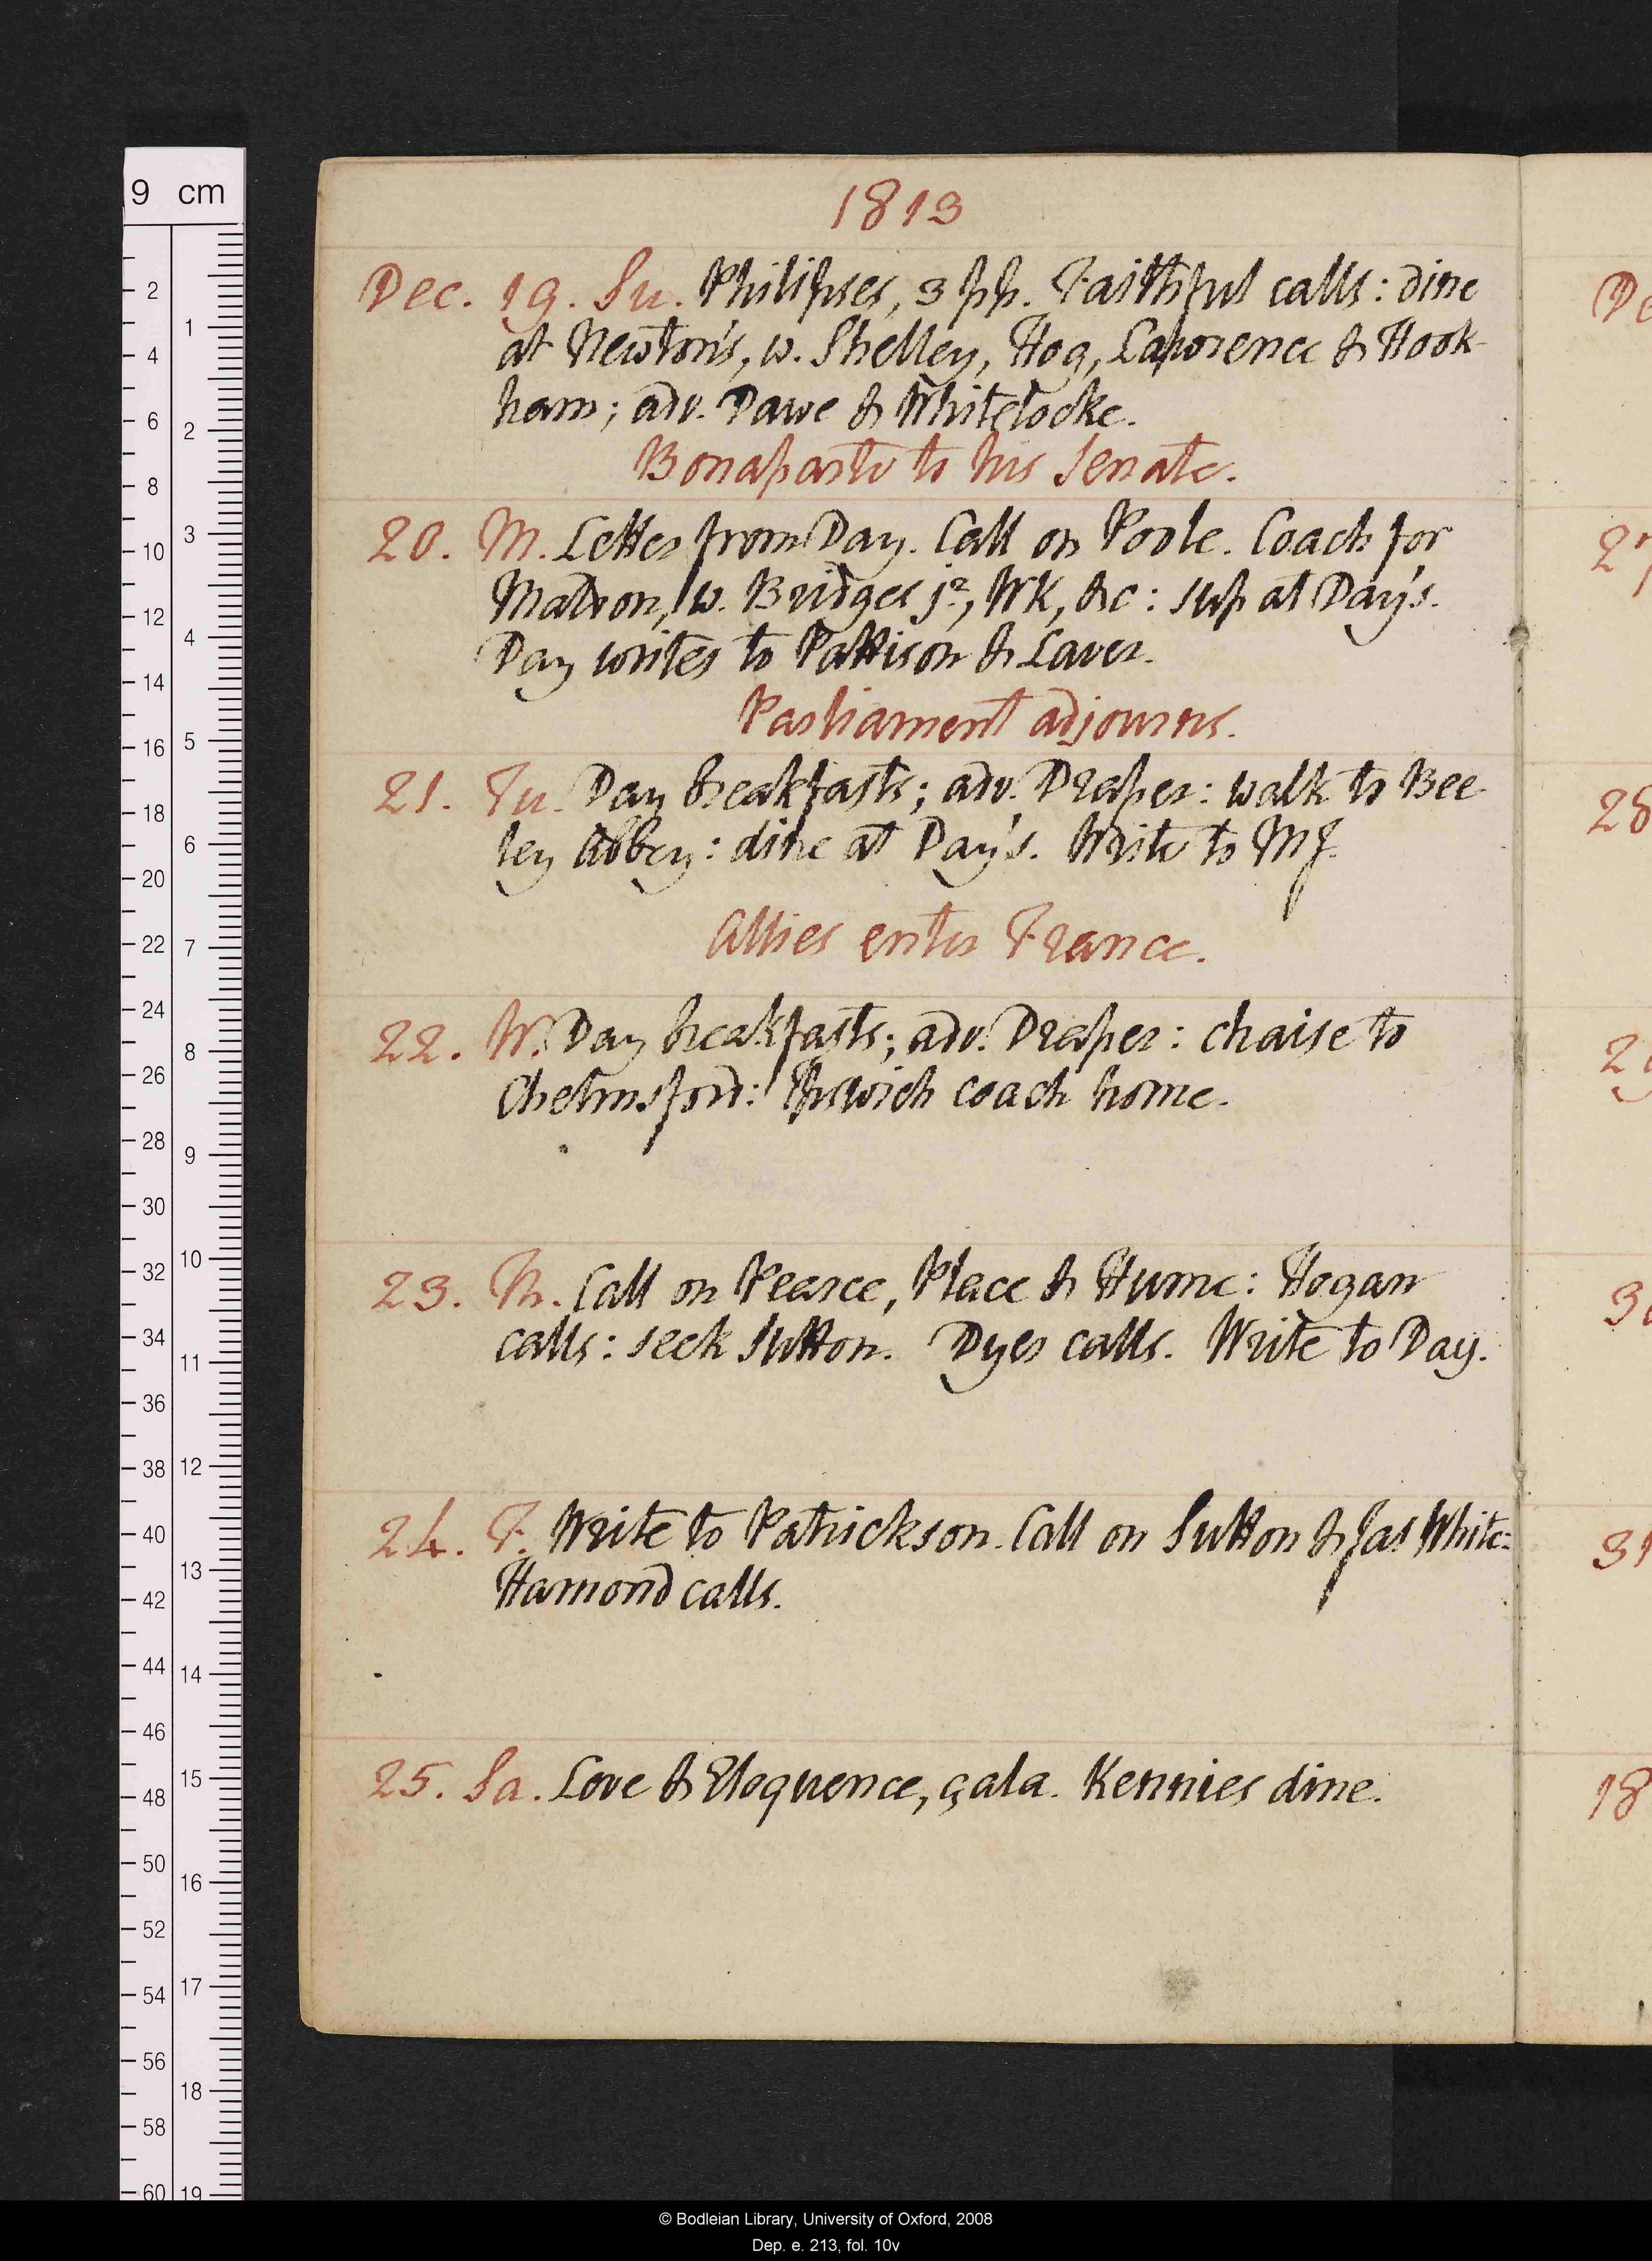 9 cm
1813
Dec. 19. Su. Philipses, 3 pp. Faithful calls: dine
at Newton's, w. Shelley, Hog, Lawrence & Hook-
ham; adv. Dawe & Whitelocke.
Bonaparte to his Senate.
20. M. Letter from Day. Call on Poole. Coach for
Maldon, w. Bridges jr, WK, &c: sup at Day's.
Day writes to Pattison & Laver.
Parliament adjourns.
21. Tu. Day breakfasts; adv. Draper: walk to Bee-
ley Abbey: dine at Day's. Write to MJ.
Allies enter France.
22. W. Day breakfasts; adv. Draper: chaise to
Chelmsford: Ipswich coach home.
23. Th. Call on Pearce, Place & Hume: Hogan
calls: seek Sutton. Dyer calls. Write to Day.
24. F. Write to Patrickson. Call on Sutton & Jas White:
Hamond calls.
25. Sa. Love & Eloquence, gala. Kennies dine.
© Bodleian Library, University of Oxford, 2008
Dep. e. 213, fol. 10v